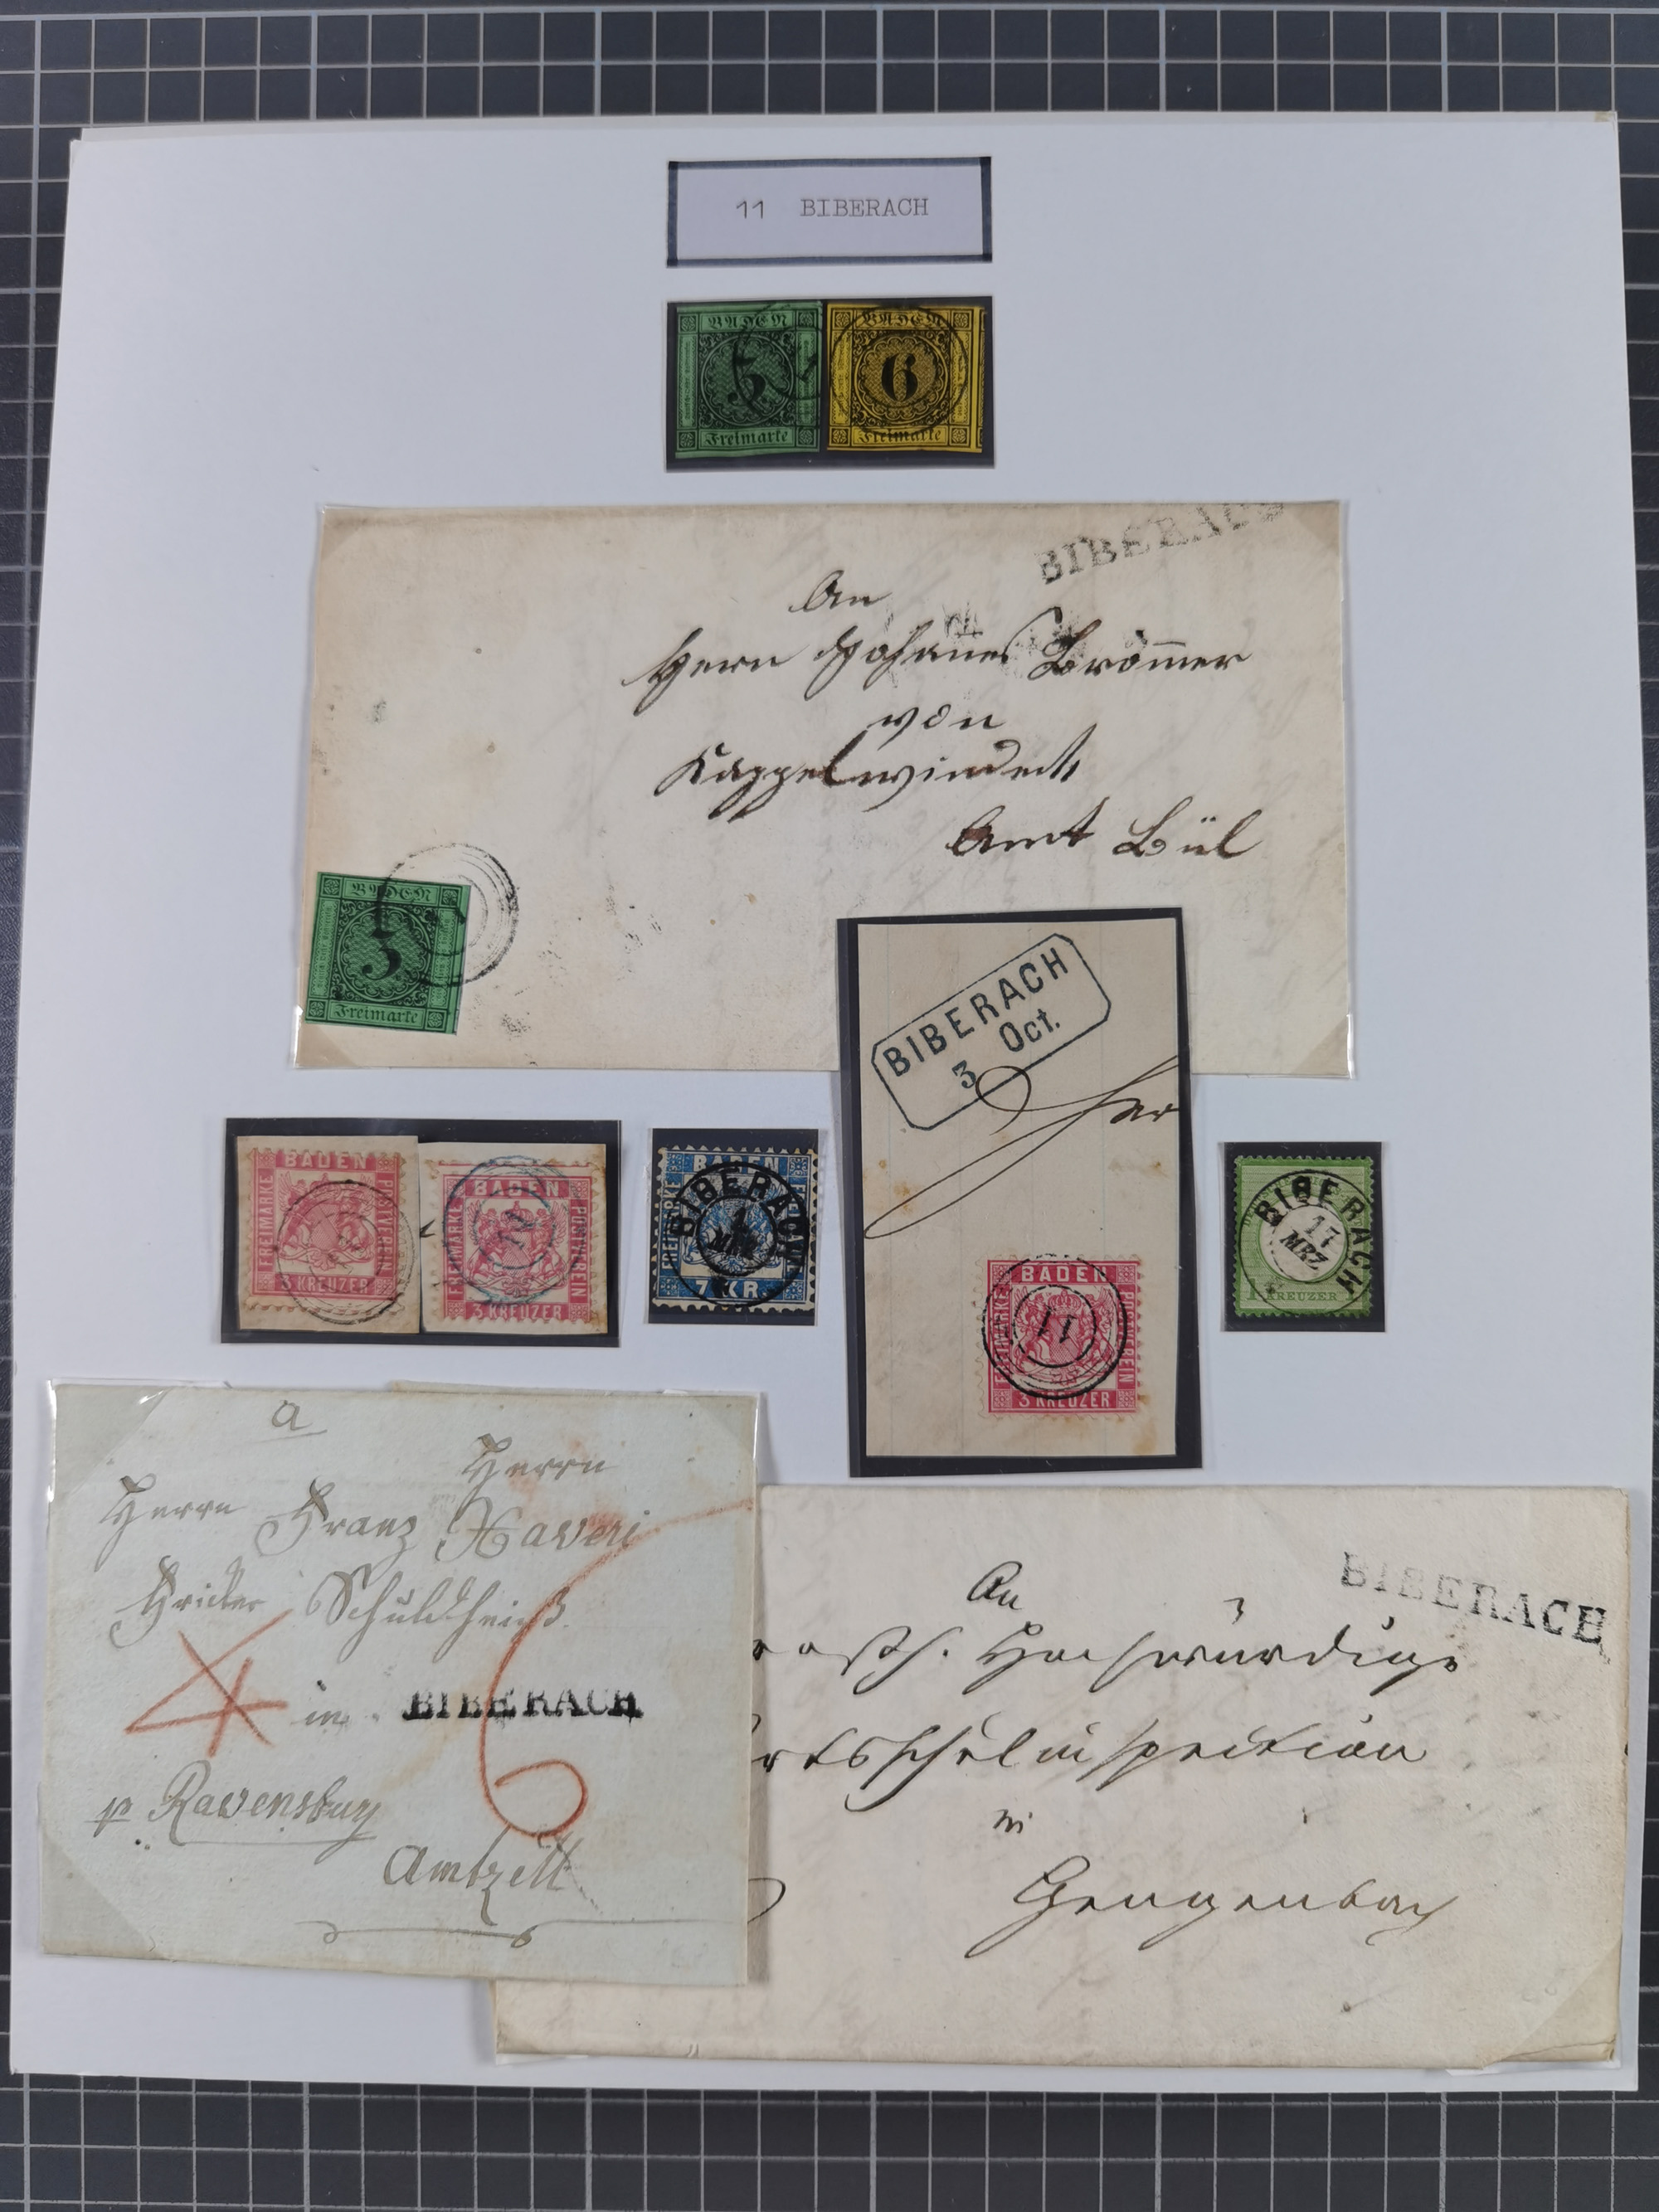 11 BIBERACH
BADEN
3
Freimarke
BADEN
6
Freimarke
BIBERACH
An
Herrn Johannes Brommer
von
Kappelwindeck
Amt Bül
BADEN
3
Freimarke
BIBERACH
3 Oct.
BADEN
FREIMARKE
POSTVEREIN
3 KREUZER
11
BADEN
FREIMARKE
POSTVEREIN
3 KREUZER
11
BADEN
FREIMARKE
7 KR.
BIBERACH
BADEN
FREIMARKE
POSTVEREIN
3 KREUZER
11
BIBERACH
17
MRZ
1 KREUZER
a
Herrn
Herrn Franz Xaveri
Fricker Schuldheiß
4 in BIBERACH
6
pr Ravensburg
Amtzell
BIBERACH
An
Hochwürdige
Ortsschulinspection
in
Gengenbach